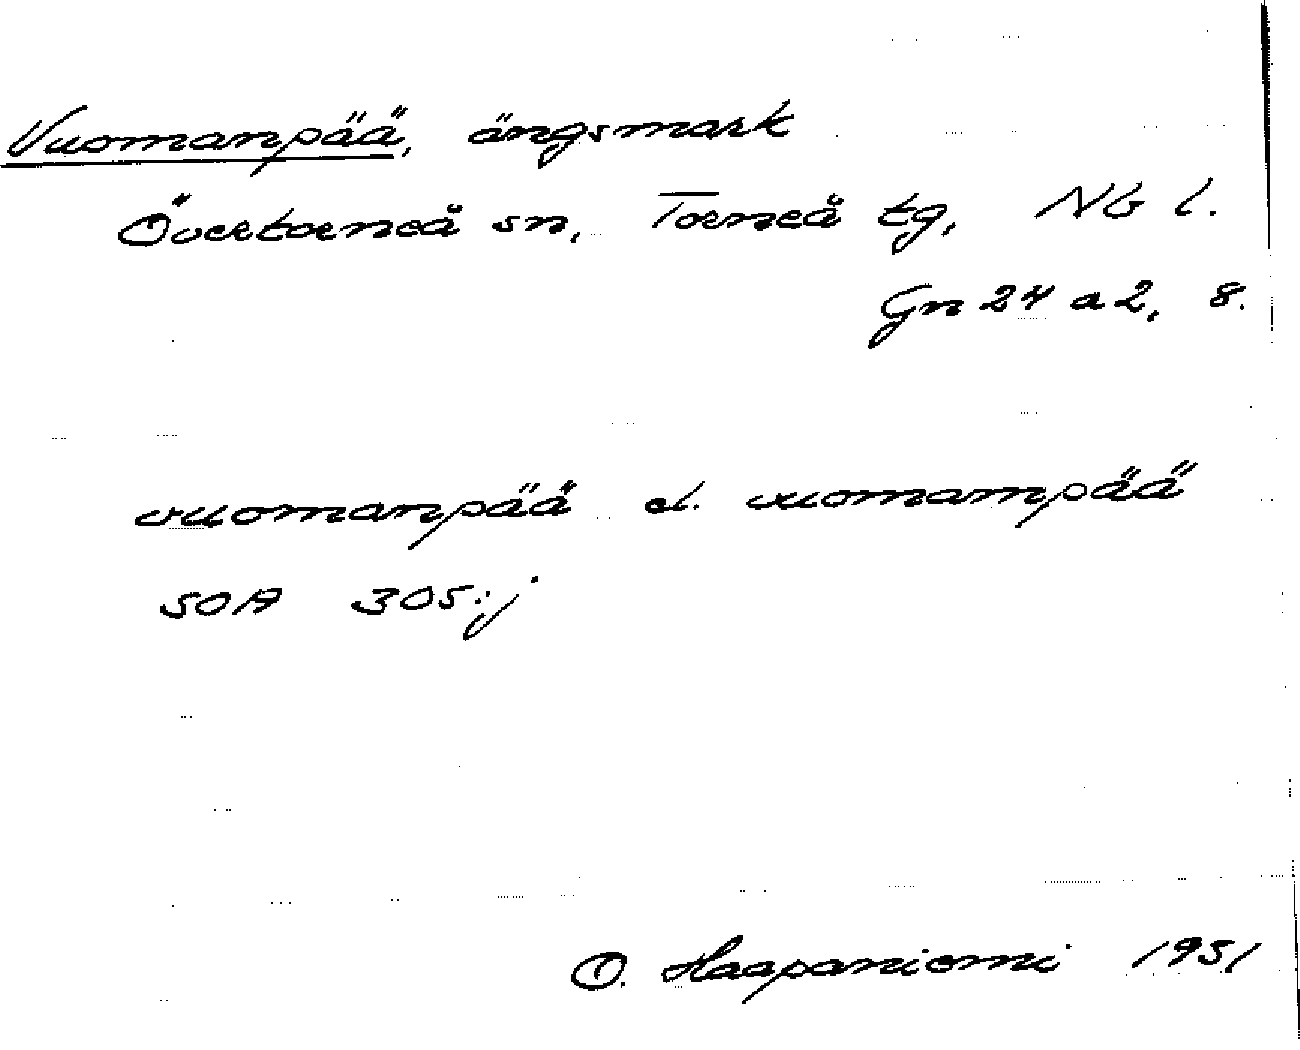 Vuomanpää, ängsmark
Övertorneå sn, Torneå tg, NB l.
Gn 24 a 2, 8.
vuomanpää el. vuomampää
SOA 305:j
O. Haapaniemi 1951